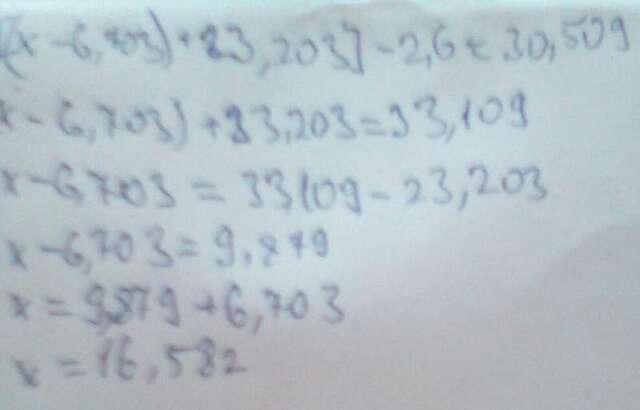 (x - 6,703) + 23,203] - 2,6 = 30,509
x - 6,703) + 23,203 = 33,109
x - 6,703 = 33,109 - 23,203
x - 6,703 = 9,879
x = 9,879 + 6,703
x = 16,582